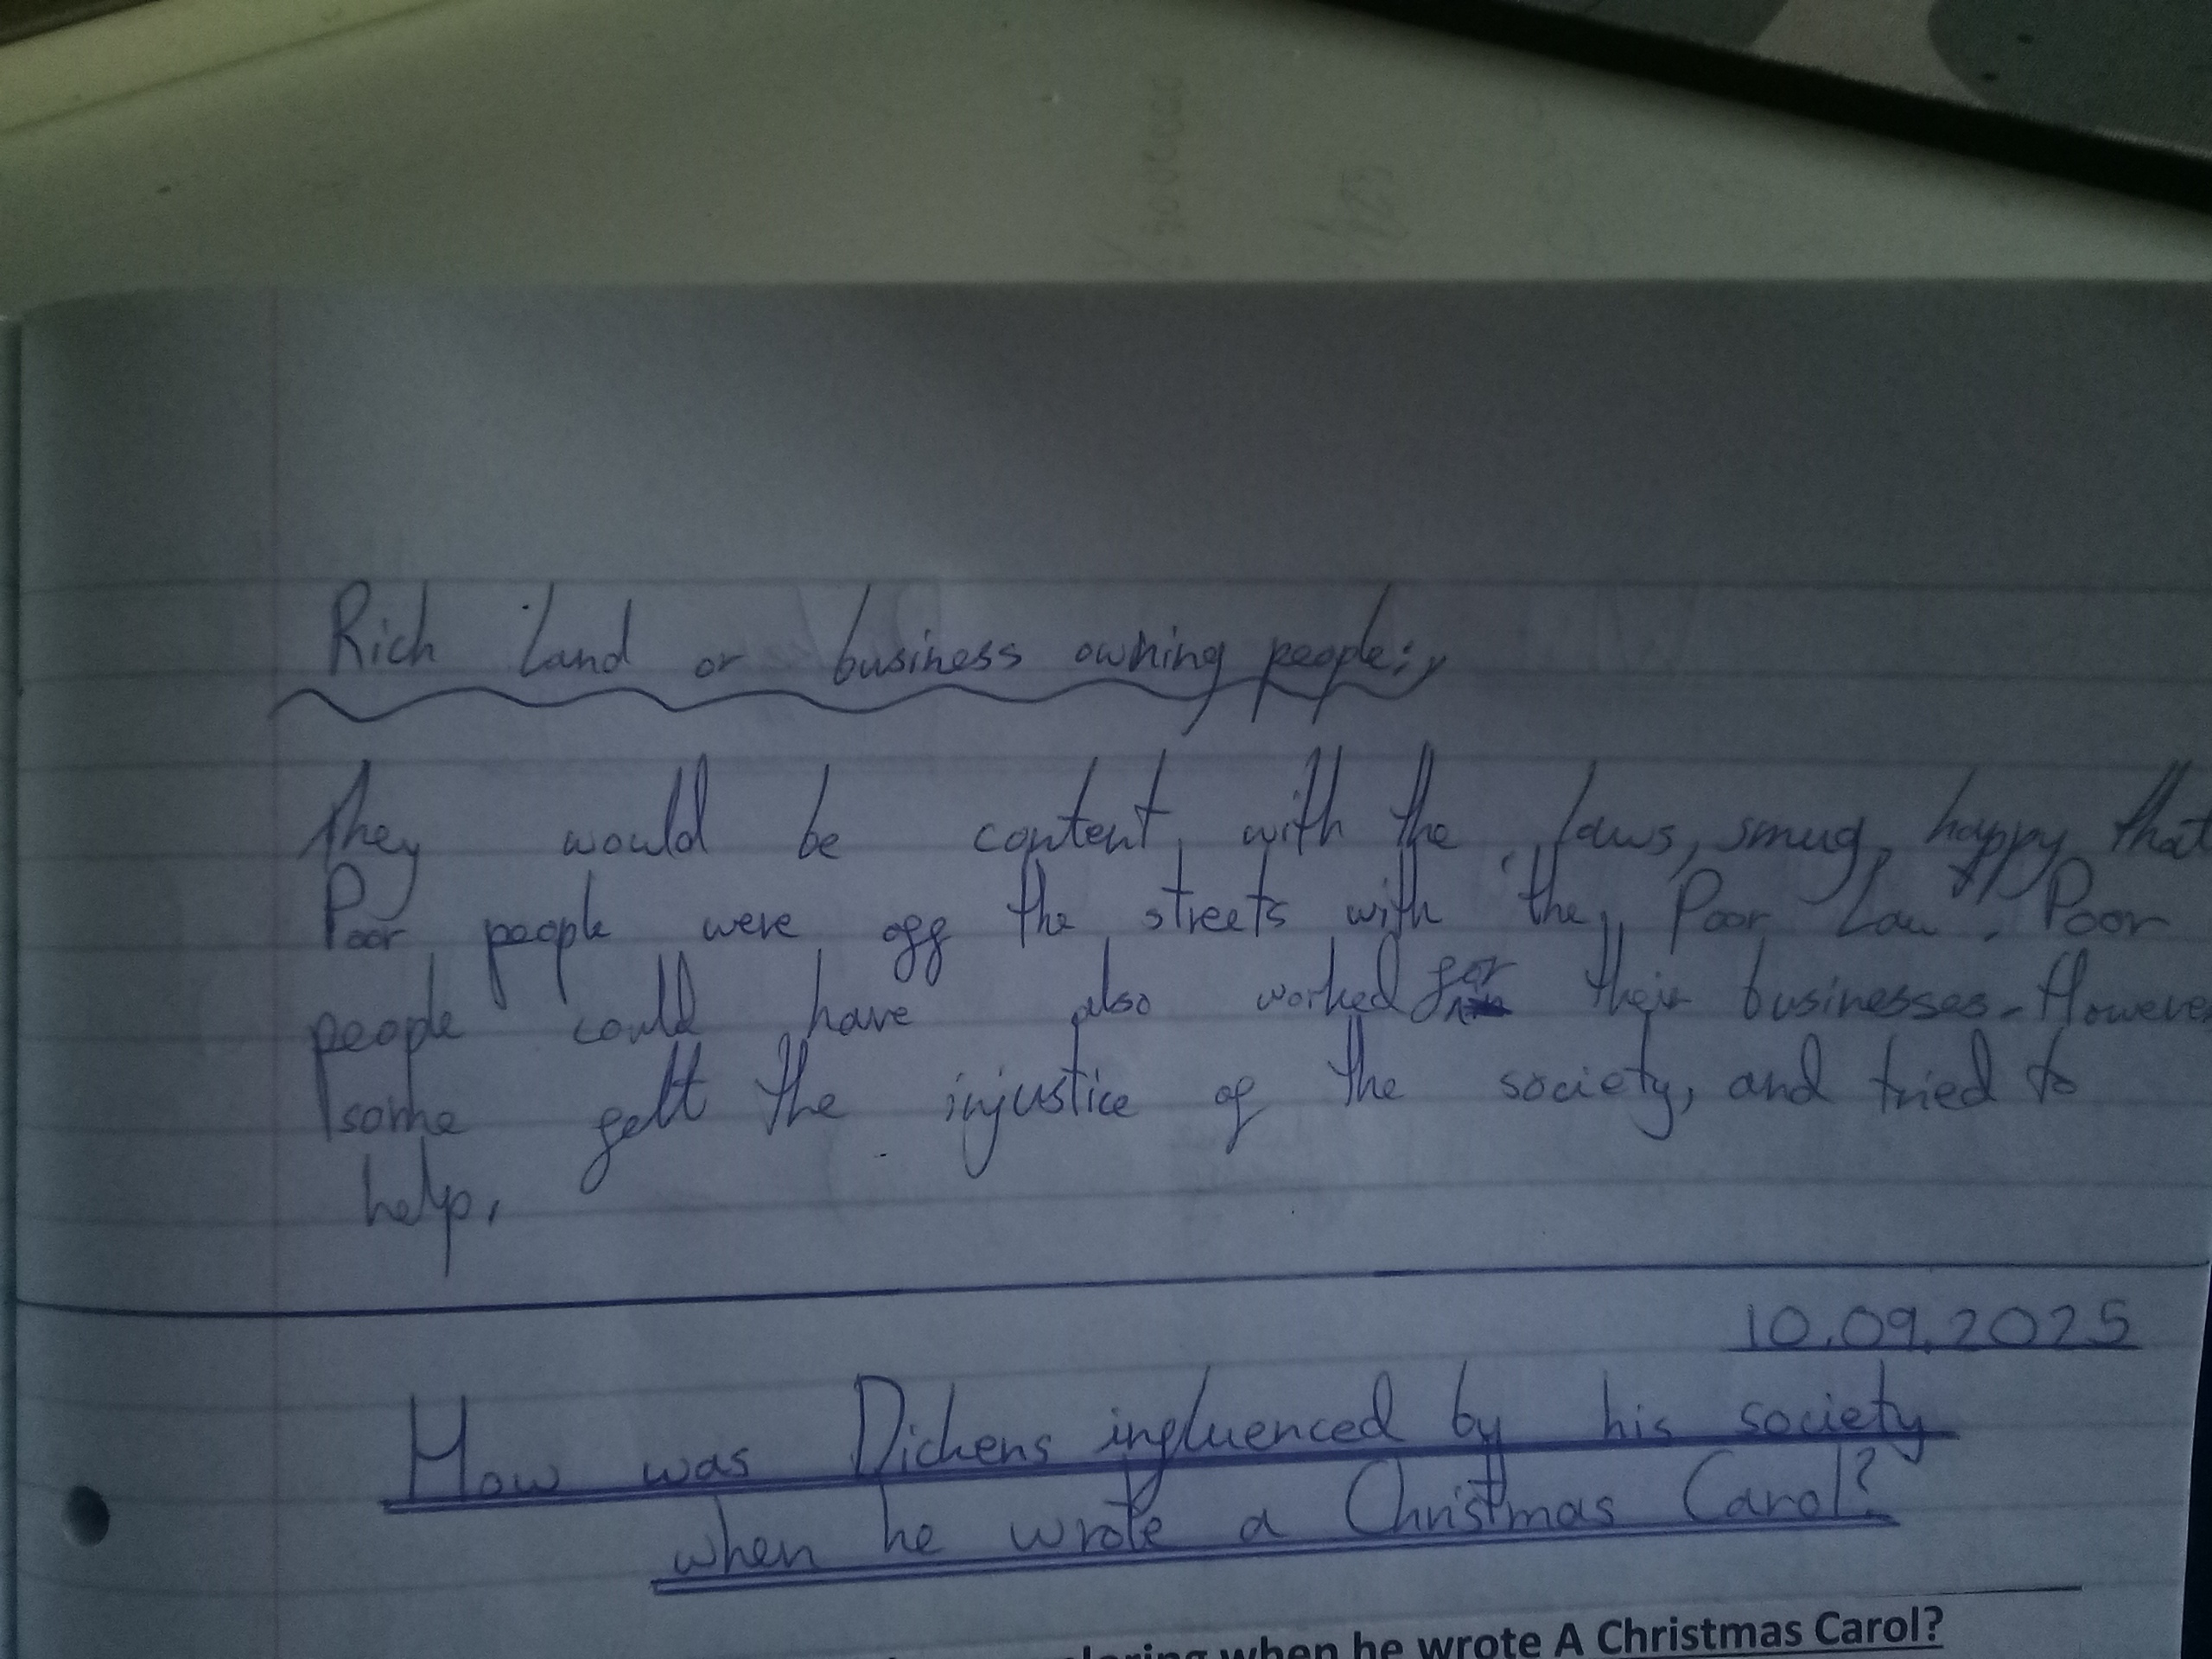 Rich Land or business owning people:,
They would be content with the laws, smug, happy that
Poor people were off the streets with the Poor Law. Poor
people could have also worked for their businesses. However
some felt the injustice of the society, and tried to
help.
10.09.2025
How was Dickens influenced by his society
when he wrote a Christmas Carol?
when he wrote A Christmas Carol?